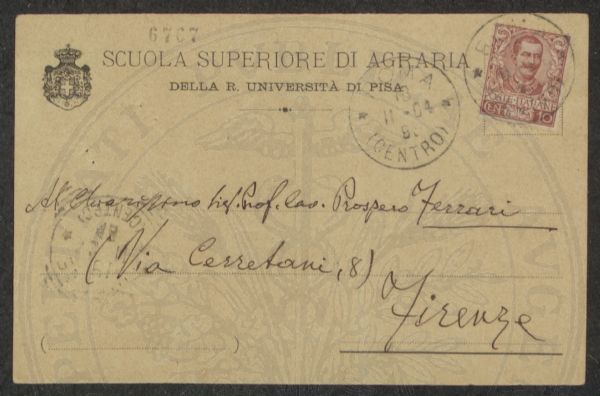 6767
SCUOLA SUPERIORE DI AGRARIA
DELLA R. UNIVERSITÀ DI PISA
POSTE ITALIANE
CENT. 10
11-04
(CENTRO)
Al Chiarissimo Sig. Prof. Cav. Prospero Ferrari
(Via Cerretani, 8)
Firenze